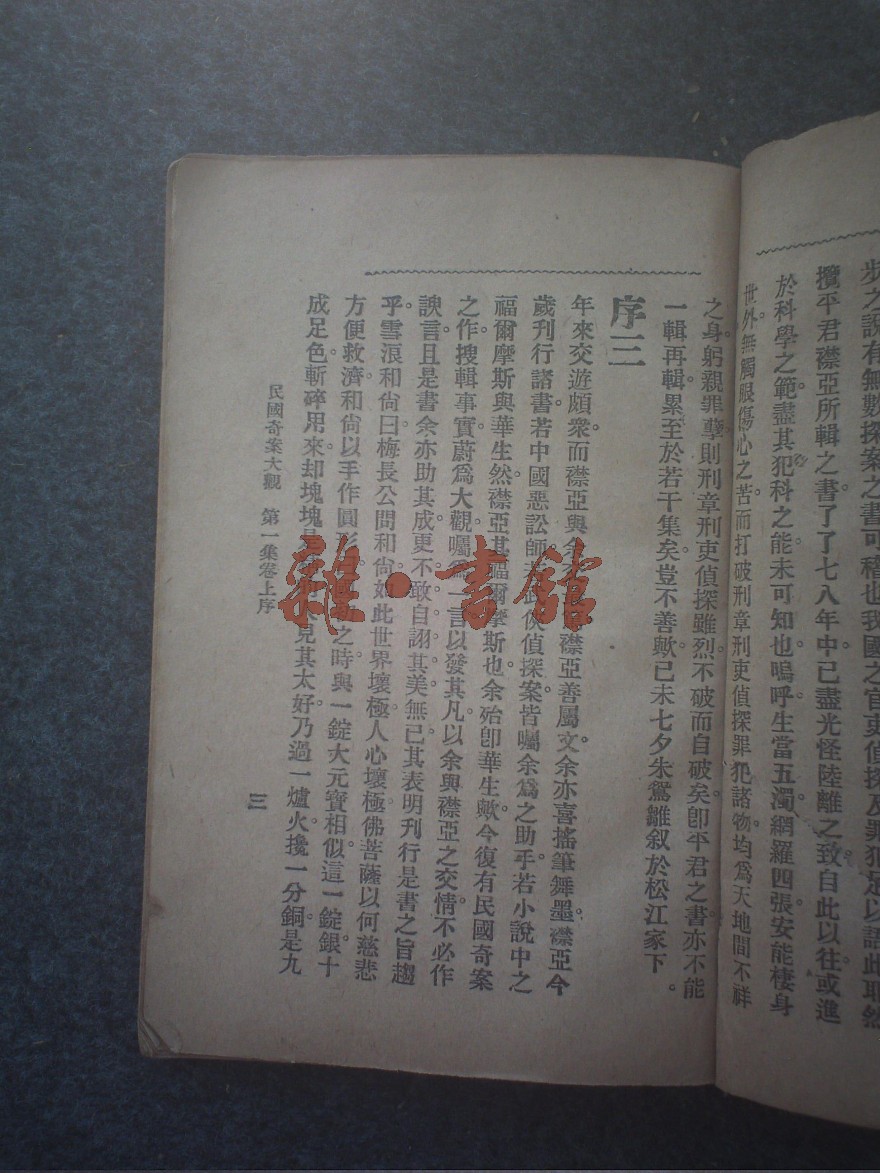 步之說有無數探案之書可稽也我國之官吏偵探及罪犯足以語此耶然
攬平君襟亞所輯之書了了七八年中已盡光怪陸離之致自此以往。或進
於科學之範。盡其犯科之能。未可知也。嗚呼。生當五濁。網羅四張。安能棲身
世外。無觸眼傷心之苦。而打破刑章刑吏偵探罪犯諸物。均為天地間不祥
之身。躬親罪孽。則刑章刑吏偵探雖烈。不破而自破矣。卽平君之書。亦不能
一輯再輯。累至於若干集矣。豈不善歟。已未七夕朱鴛雛叙於松江家下。
序三
年來交遊頗衆。而襟亞與余 襟亞善屬文。余亦喜搖筆舞墨。襟亞今
歲刊行諸書。若中國惡訟師 武俠偵探案。皆囑余爲之助手。若小說中之
福爾摩斯與華生。然襟亞其福爾摩斯也。余殆卽華生歟。今復有民國奇案
之作。搜輯事實。蔚爲大觀。囑爲一言以發其凡。以余與襟亞之交情。不必作
諛言。且是書余亦助其成。更不敢自詡其美。無已。其表明刊行是書之旨趨
乎。雪浪和尙曰。梅長公問和尙。如此世界壞極。人心壞極。佛菩薩以何慈悲
方便救濟。和尙以手作圓形 之時。與一錠大元寶相似。這一錠銀十
成足色。斬碎用來。却塊塊是 見其太好。乃過一爐火。攙一分銅。是九
民國奇案大觀 第一集卷上序
三
雜·書館